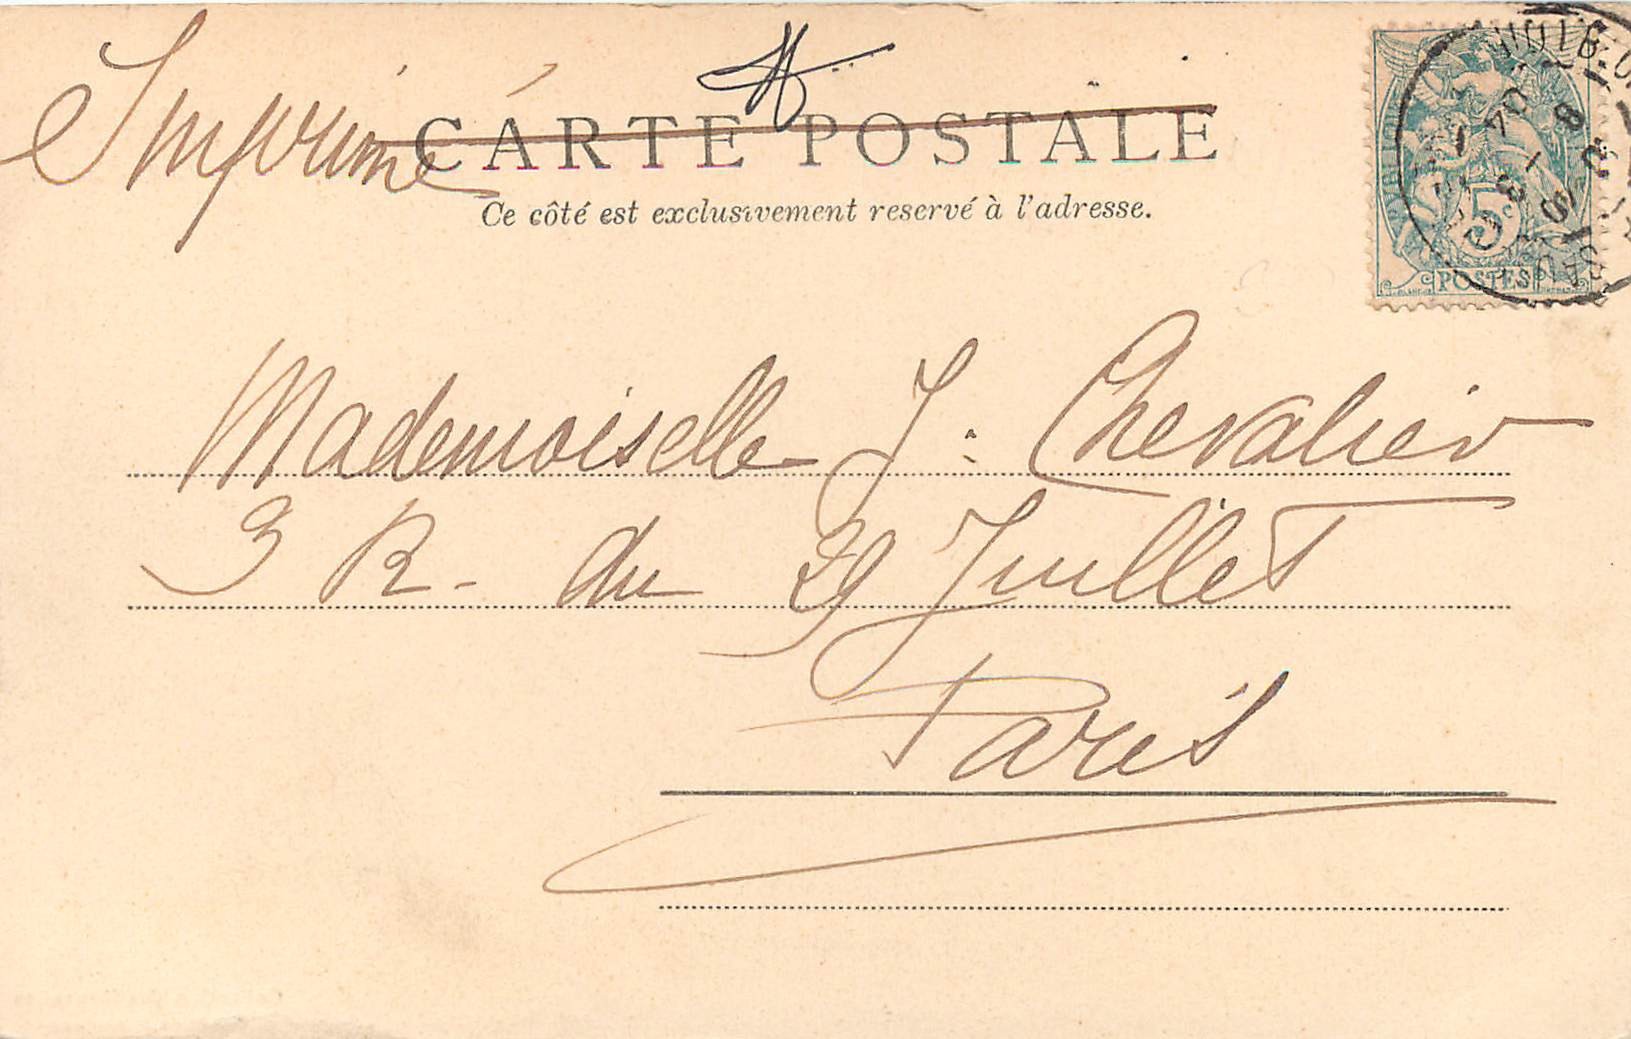 Imprimé
CARTE POSTALE
Ce côté est exclusivement reservé à l'adresse.
5c
POSTES
Mademoiselle J. Chevalier
3 R. du 29 Juillet
Paris